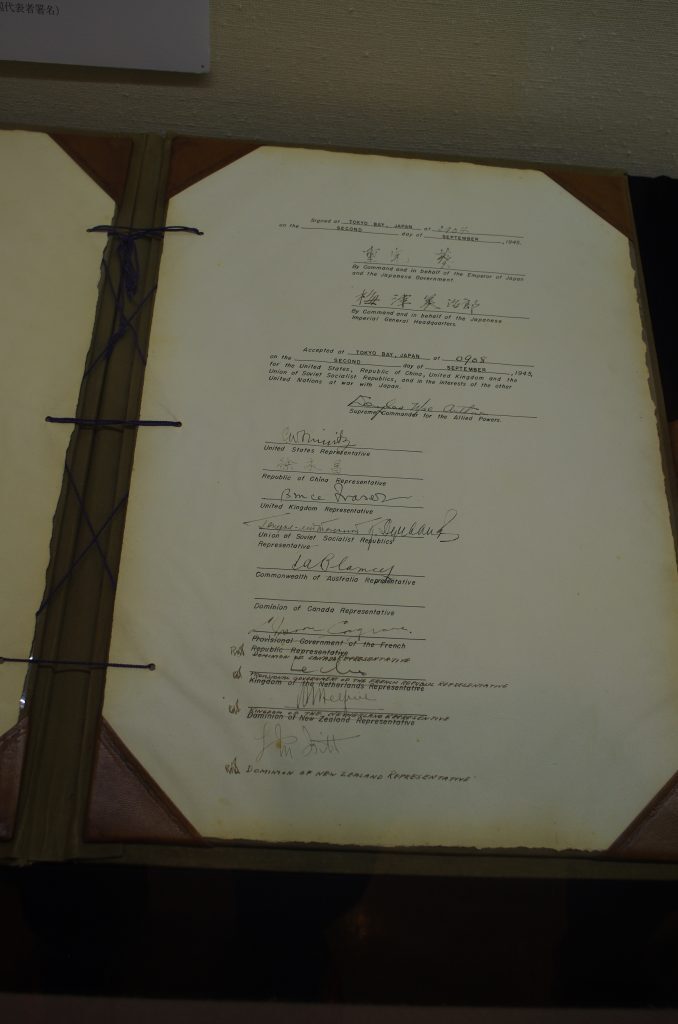 国代表者署名)
Signed at TOKYO BAY, JAPAN at 0904
on the SECOND day of SEPTEMBER, 1945.
重光 葵
By Command and in behalf of the Emperor of Japan
and the Japanese Government.
梅津美治郎
By Command and in behalf of the Japanese
Imperial General Headquarters.
Accepted at TOKYO BAY, JAPAN at 0908
on the SECOND day of SEPTEMBER, 1945,
for the United States, Republic of China, United Kingdom and the
Union of Soviet Socialist Republics, and in the interests of the other
United Nations at war with Japan.
Douglas MacArthur
Supreme Commander for the Allied Powers.
CW Nimitz
United States Representative
徐永昌
Republic of China Representative
Bruce Fraser
United Kingdom Representative
Union of Soviet Socialist Republics
Representative
Commonwealth of Australia Representative
Dominion of Canada Representative
Moore Cosgrave.
Provisional Government of the French
Republic Representative
DOMINION OF CANADA REPRESENTATIVE
Leclerc
PROVISIONAL GOVERNMENT OF THE FRENCH REPUBLIC REPRESENTATIVE
Kingdom of the Netherlands Representative
KINGDOM OF THE NETHERLANDS REPRESENTATIVE
Dominion of New Zealand Representative
DOMINION OF NEW ZEALAND REPRESENTATIVE